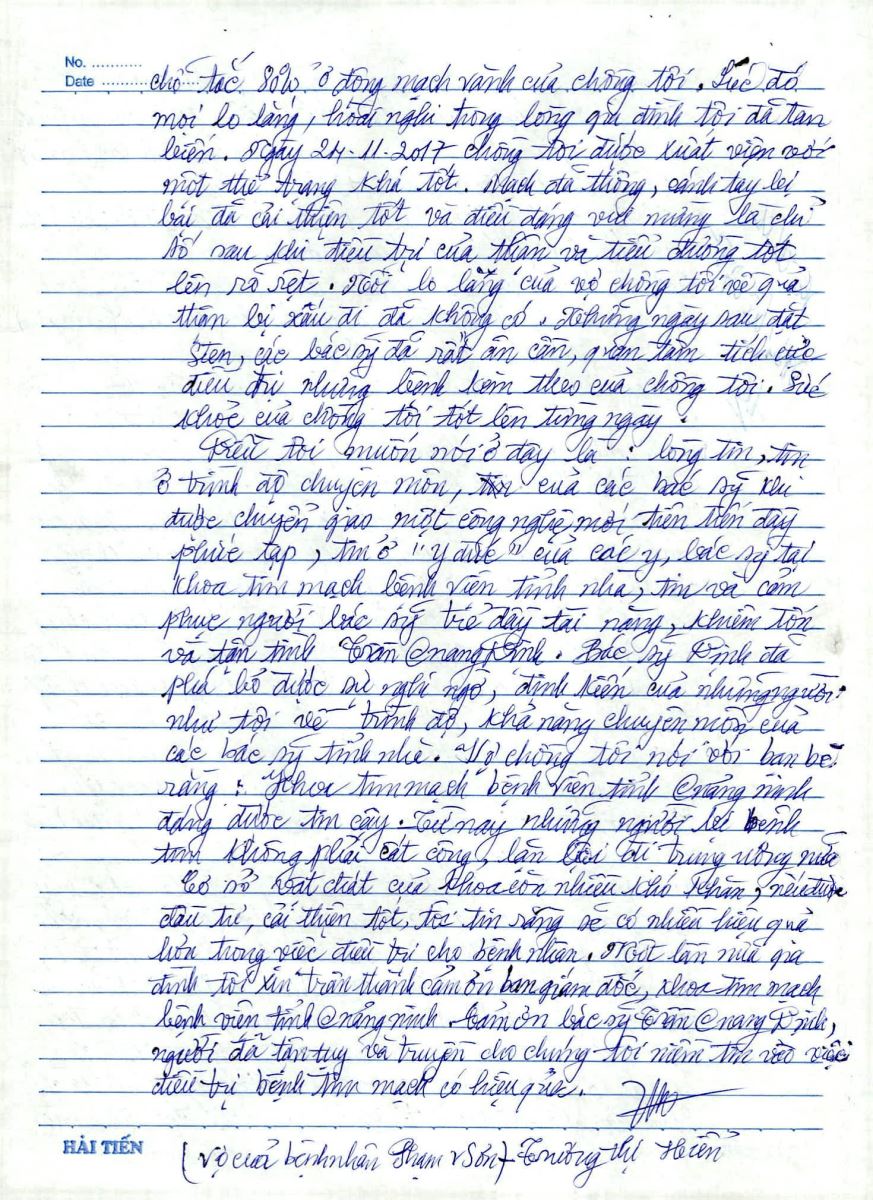 No. ............
Date ..................
chỗ tắc 80% ở động mạch vành của chồng tôi. Lúc đó
mọi lo lắng, hoài nghi trong lòng gia đình tôi đã tan
biến. Ngày 24-11-2017 chồng tôi được xuất viện với
một thể trạng khá tốt. Mạch đã thông, cánh tay bị
bại đã cải thiện tốt và điều đáng vui mừng là chỉ
số sau khi điều trị của thận và tiểu đường tốt
lên rõ rệt. Nỗi lo lắng của vợ chồng tôi về quả
thận bị xấu đi đã không có. Những ngày sau đặt
Sten, các bác sỹ đã rất ân cần, quan tâm tích cực
điều trị những bệnh kèm theo của chồng tôi. Sức
khỏe của chồng tôi tốt lên từng ngày.
Điều tôi muốn nói ở đây là: lòng tin, tin
ở trình độ chuyên môn, của các bác sỹ khi
được chuyển giao một công nghệ mới tiên tiến đầy
phức tạp, tin ở "y đức" của các y, bác sỹ tại
khoa tim mạch bệnh viện tỉnh nhà, tin và cảm
phục người bác sỹ trẻ đầy tài năng, khiêm tốn
và tận tình Trần Quang Định. Bác sỹ Định đã
phá bỏ được sự nghi ngờ, định kiến của những người
như tôi về trình độ, khả năng chuyên môn của
các bác sỹ tỉnh nhà. Vợ chồng tôi nói với bạn bè
rằng: Khoa tim mạch bệnh viện tỉnh Quảng Ninh
đáng được tin cậy. Từ nay những người bị bệnh
tim không phải cất công, lặn lội đi trung ương nữa
Cơ sở vật chất của khoa còn nhiều khó khăn, nếu được
đầu tư, cải thiện tốt, tôi tin rằng sẽ có nhiều hiệu quả
hơn trong việc điều trị cho bệnh nhân. Một lần nữa gia
đình tôi xin trân thành cảm ơn ban giám đốc, khoa tim mạch
bệnh viện tỉnh Quảng Ninh. Cảm ơn bác sỹ Trần Quang Định,
người đã tận tụy và truyền cho chúng tôi niềm tin vào việc
điều trị bệnh tim mạch có hiệu quả.
HẢI TIẾN
(Vợ của bệnh nhân Phạm v Sơn) - Trương Thị Hiền